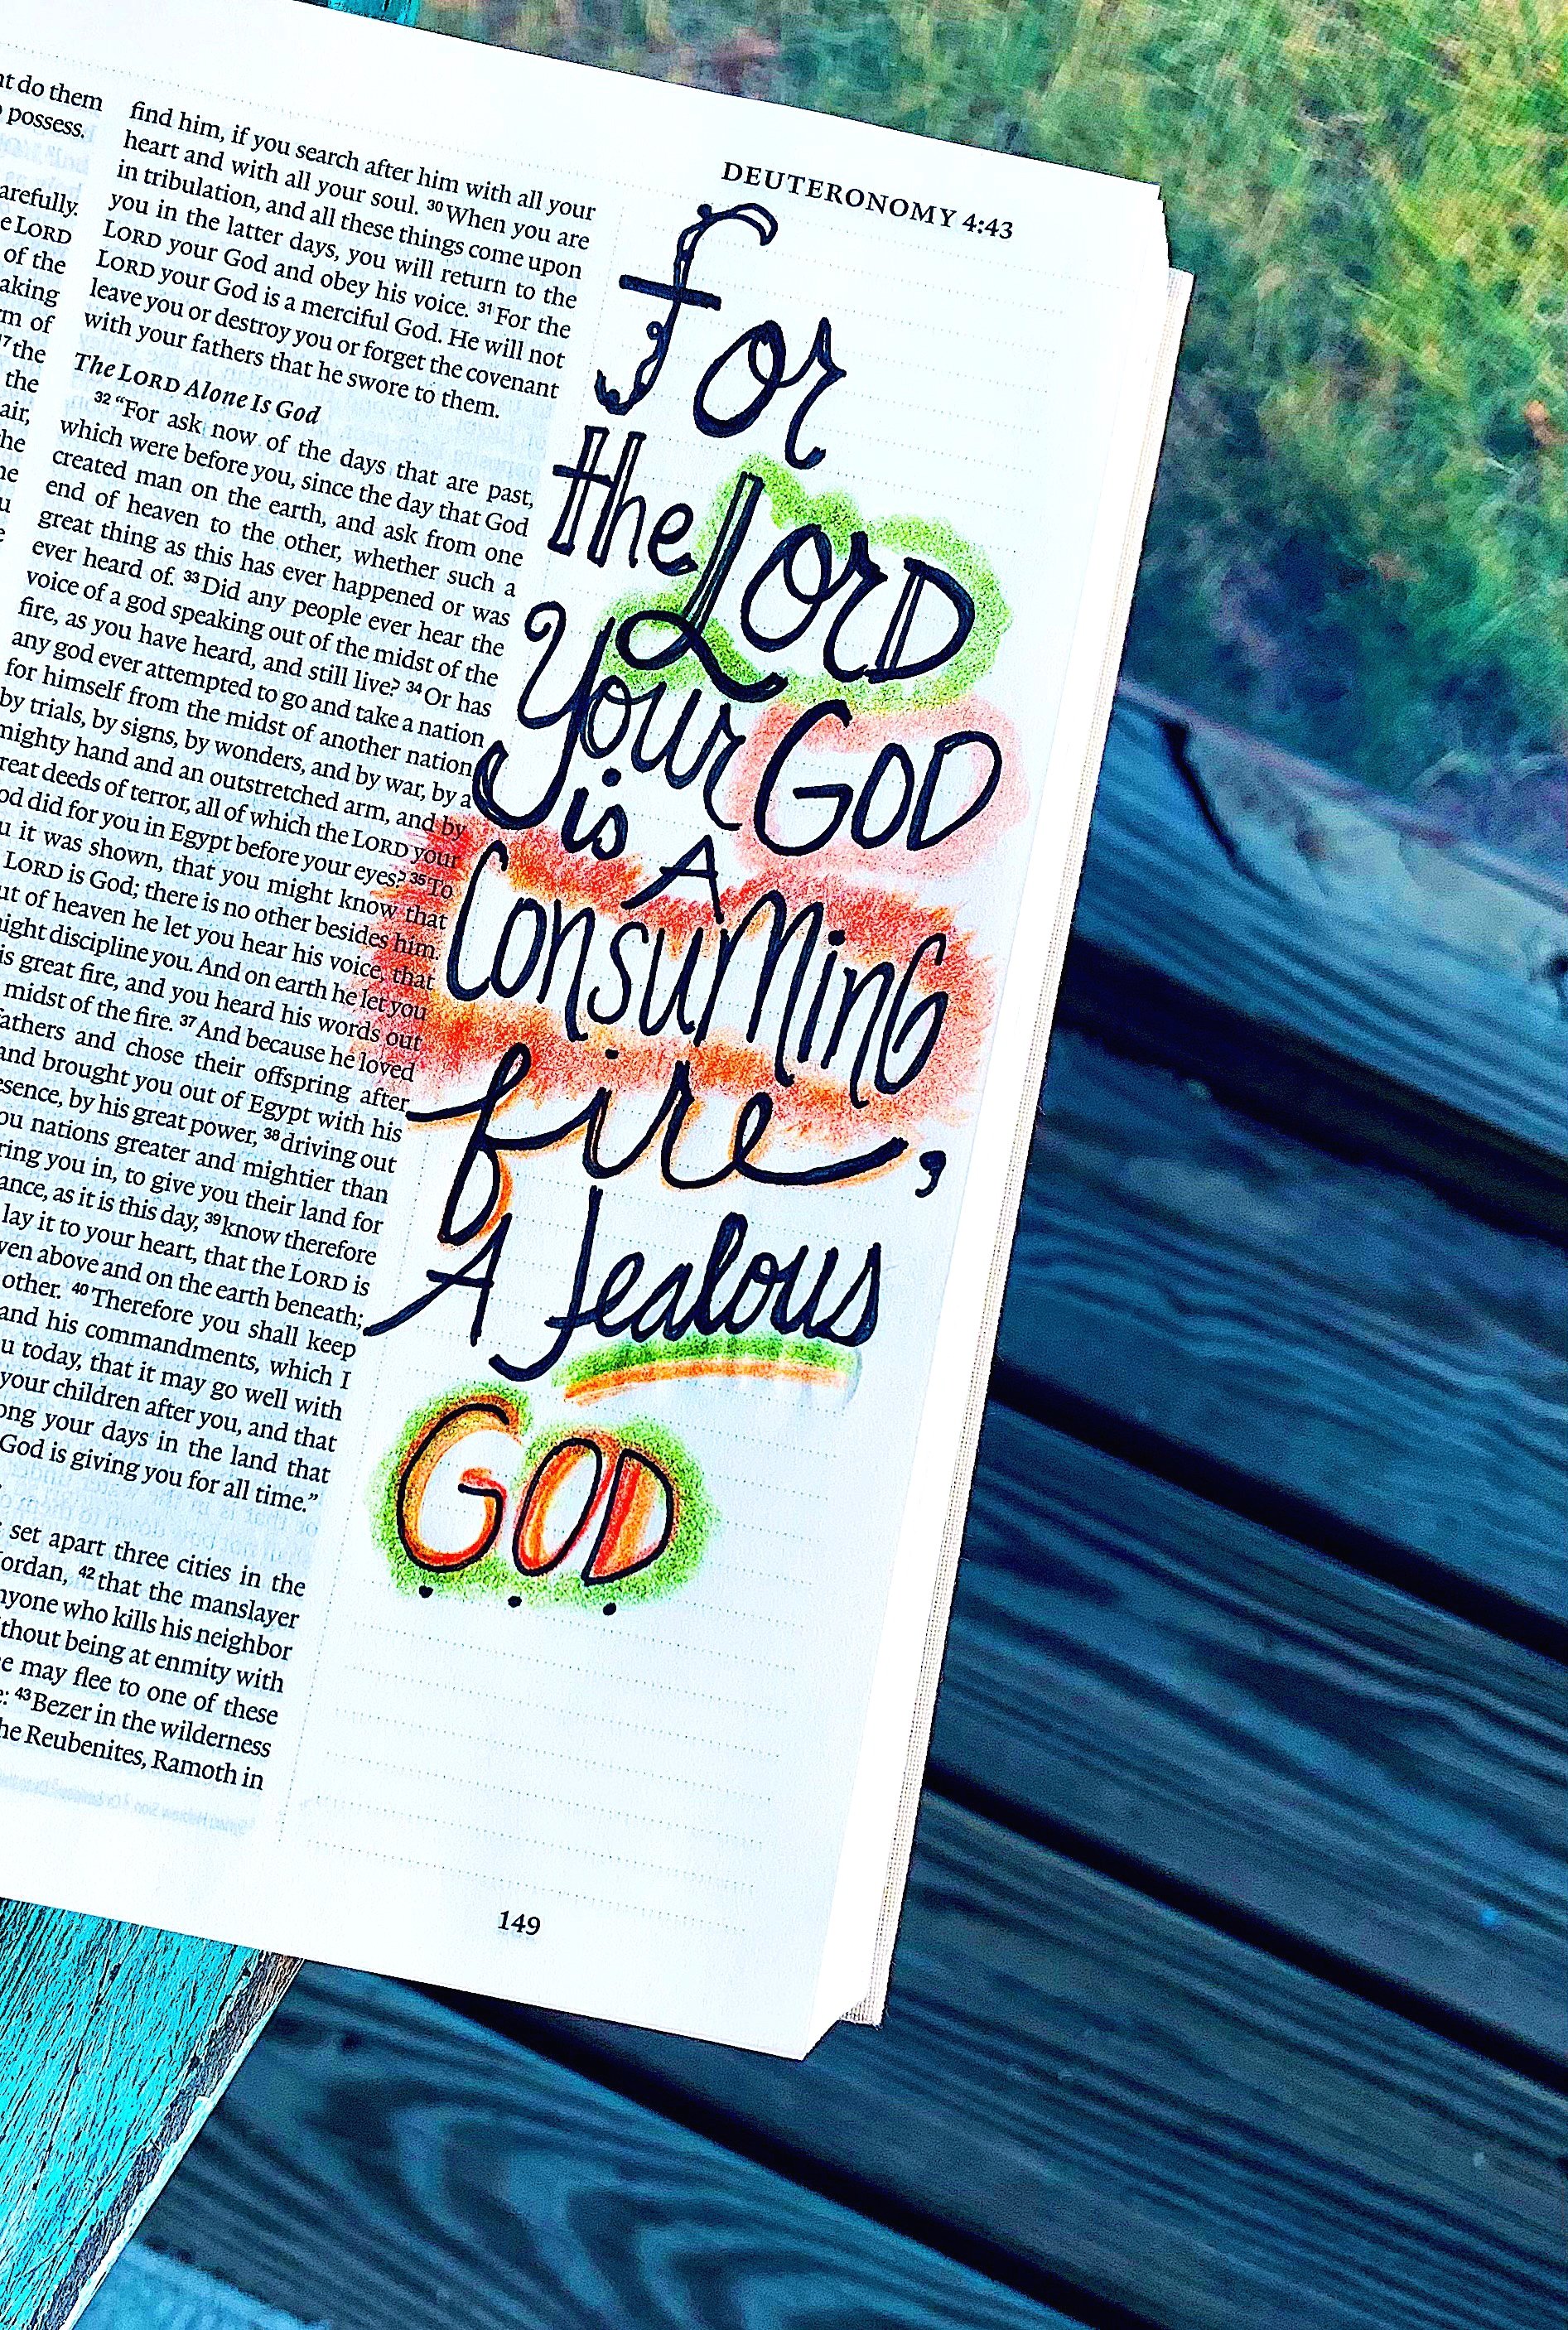 nt do them
possess.
arefully.
e LORD
of the
aking
rm of
17 the
the
air,
DEUTERONOMY 4:43
find him, if you search after him with all your
heart and with all your soul. 30 When you are
in tribulation, and all these things come upon
you in the latter days, you will return to the
LORD your God and obey his voice. 31 For the
LORD your God is a merciful God. He will not
leave you or destroy you or forget the covenant
with your fathers that he swore to them.
The LORD Alone Is God
32 “For ask now of the days that are past,
which were before you, since the day that God
created man on the earth, and ask from one
end of heaven to the other, whether such a
great thing as this has ever happened or was
ever heard of. 33 Did any people ever hear the
voice of a god speaking out of the midst of the
fire, as you have heard, and still live? 34 Or has
any god ever attempted to go and take a nation
for himself from the midst of another nation,
by trials, by signs, by wonders, and by war, by a
mighty hand and an outstretched arm, and by
reat deeds of terror, all of which the LORD your
od did for you in Egypt before your eyes? 35 To
u it was shown, that you might know that
LORD is God; there is no other besides him.
ut of heaven he let you hear his voice, that
ight discipline you. And on earth he let you
is great fire, and you heard his words out
midst of the fire. 37 And because he loved
athers and chose their offspring after
and brought you out of Egypt with his
esence, by his great power, 38 driving out
ou nations greater and mightier than
ring you in, to give you their land for
ance, as it is this day, 39 know therefore
lay it to your heart, that the LORD is
ven above and on the earth beneath;
other. 40 Therefore you shall keep
and his commandments, which I
u today, that it may go well with
your children after you, and that
ong your days in the land that
God is giving you for all time.”
set apart three cities in the
ordan, 42 that the manslayer
nyone who kills his neighbor
ithout being at enmity with
e may flee to one of these
: 43 Bezer in the wilderness
he Reubenites, Ramoth in
for
the LorD
Your GOD
is A
ConsuMinG
fire,
A Jealous
GOD
...
149